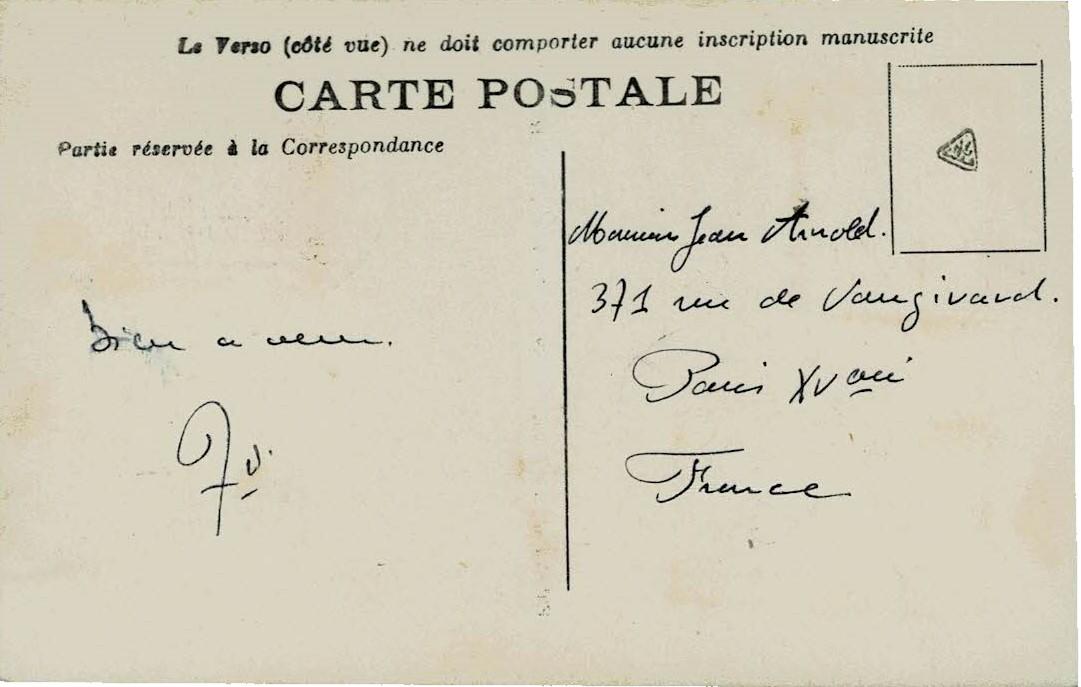 Le Verso (côté vue) ne doit comporter aucune inscription manuscrite
CARTE POSTALE
Partie réservée à la Correspondance
Monsieur Jean Arnold.
371 rue de Vaugirard.
Bien a vous.
Paris XV
France